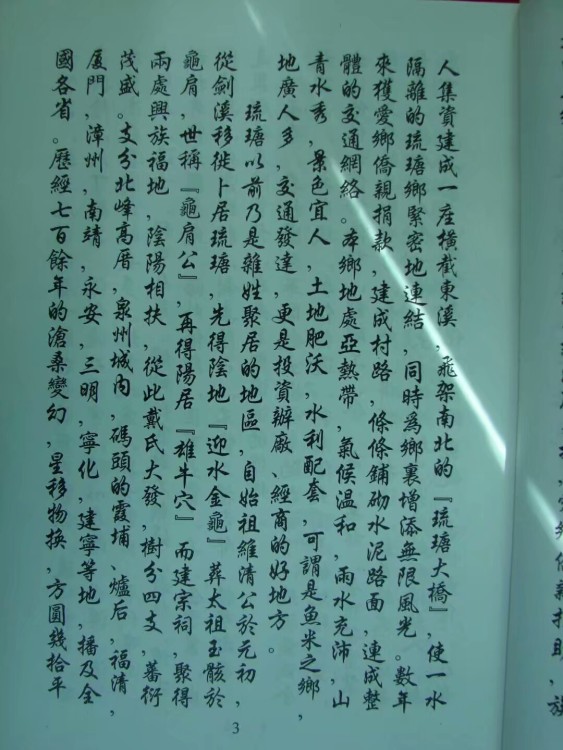 人集資建成一座橫截東溪，飛架南北的『琉瑭大橋』，使一水
隔離的琉瑭鄉緊密地連結，同時為鄉裏增添無限風光。數年
來獲愛鄉僑親捐款，建成村路，條條鋪砌水泥路面，連成整
體的交通網絡。本鄉地處亞熱帶，氣候温和，雨水充沛，山
青水秀，景色宜人，土地肥沃，水利配套，可謂是魚米之鄉，
地廣人多，交通發達，更是投資辦廠、經商的好地方。
琉瑭以前乃是雜姓聚居的地區，自始祖維清公於元初，
從劍溪移徙卜居琉瑭，先得陰地『迎水金龜』葬太祖玉骸於
龜肩，世稱『龜肩公』，再得陽居『雄牛穴』而建宗祠，聚得
兩處興族福地，陰陽相扶，從此戴氏大發，樹分四支，蕃衍
茂盛。支分北峰高厝，泉州城內，碼頭的霞埔、爐后，福清，
廈門，漳州，南靖，永安，三明，寧化，建寧等地，播及全
國各省。歷經七百餘年的滄桑變幻，星移物換，方圓幾拾平
3